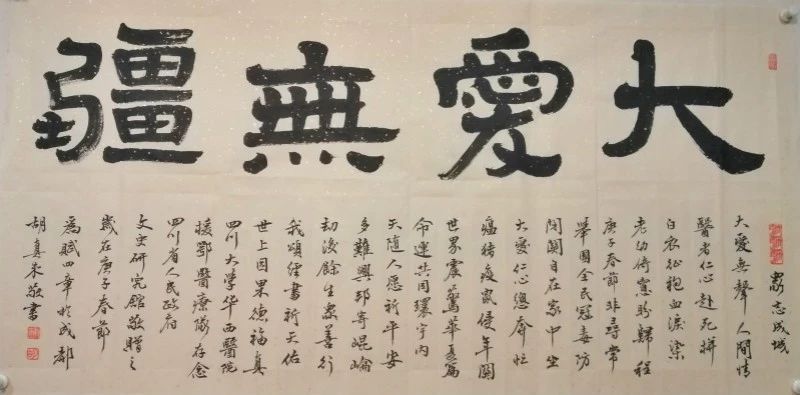 大愛無疆
眾志成城
大愛無聲人間情
醫者仁心赴死拼
白衣征袍血淚染
老幼倚窗盼歸程
庚子春節非尋常
舉国全民冠毒防
閉關自在家中坐
大愛仁心總奔忙
瘟猪疫鼠侵年關
世界震驚華夏篇
命運共同環宇内
天隨人愿祈平安
多難興邦寄崐崘
劫後餘生眾善行
我頌經書祈天佑
世上因果德福真
四川大学华西醫院
援鄂醫療隊存念
四川省人民政府
文史研究館敬贈之
歲在庚子春節
為賦四章於成都
胡真来敬書